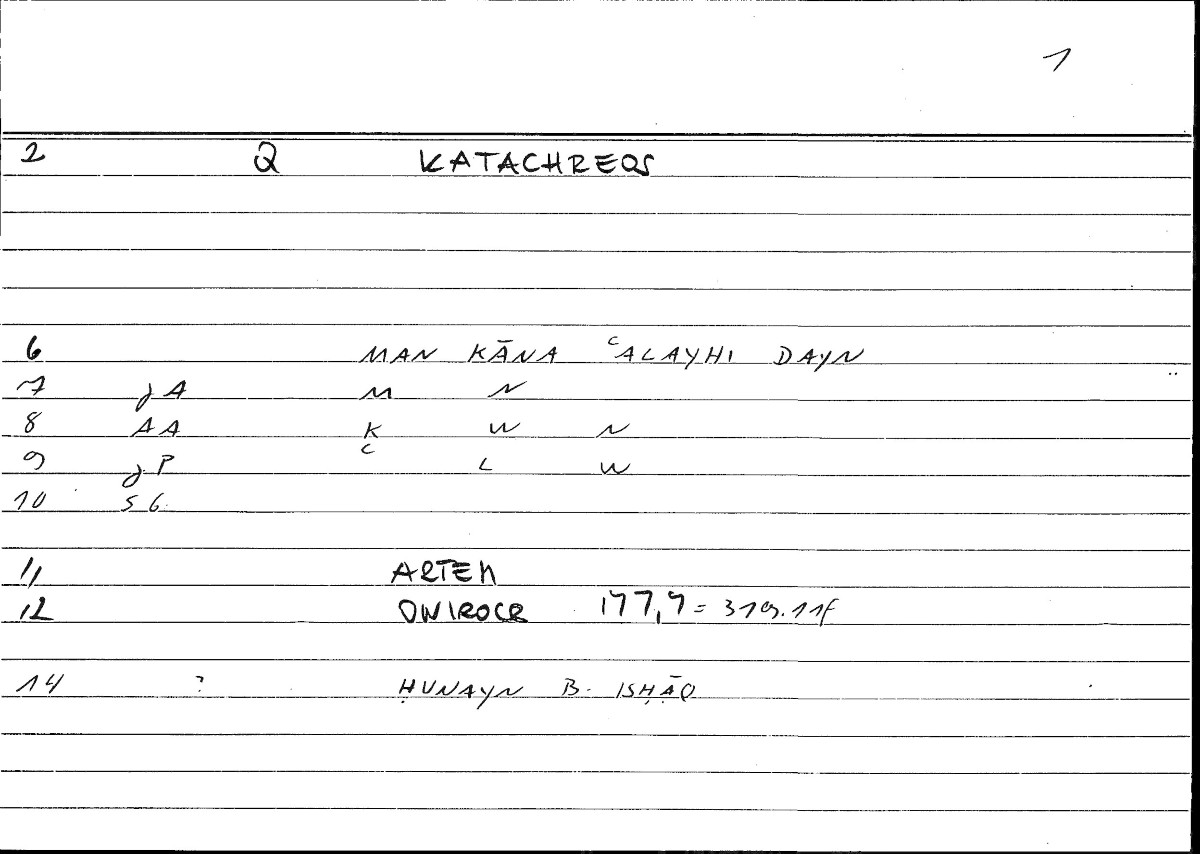 1
2 Q KATACHREOS
6 MAN KĀNA ʿALAYHI DAYN
7 JA M N
8 AA K W N
9 JP ʿ L W
10 SG
11 ARTEM
12 ONIROCR 177,9 = 319.11f
14 ? ḤUNAYN B. ISḤĀQ